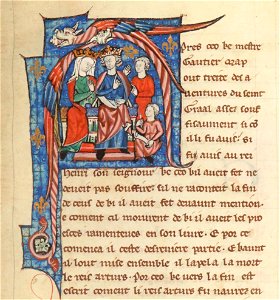 Apres ceo be mestre
Gautier
out treite des a
uentures du seint
Graal assez suf
fisaument si cō
il li fu auis. Si
fu auis au rei
Henri son seignour be ceo bil aueit fet ne
deueit pas souffire sil ne raconteit la fin
de ceus de bi il aueit fet deuaunt mention.
coment cil morurent de bi il aueit les pro
esces ramenteues en son liure. E por ceo
comenca il ceste desreniere partie. E baunt
il lout mise ensemble il lapela la mort
le reis arturs. Por ceo be uers la fin est
escrist coment li reis arturs fu naurez en